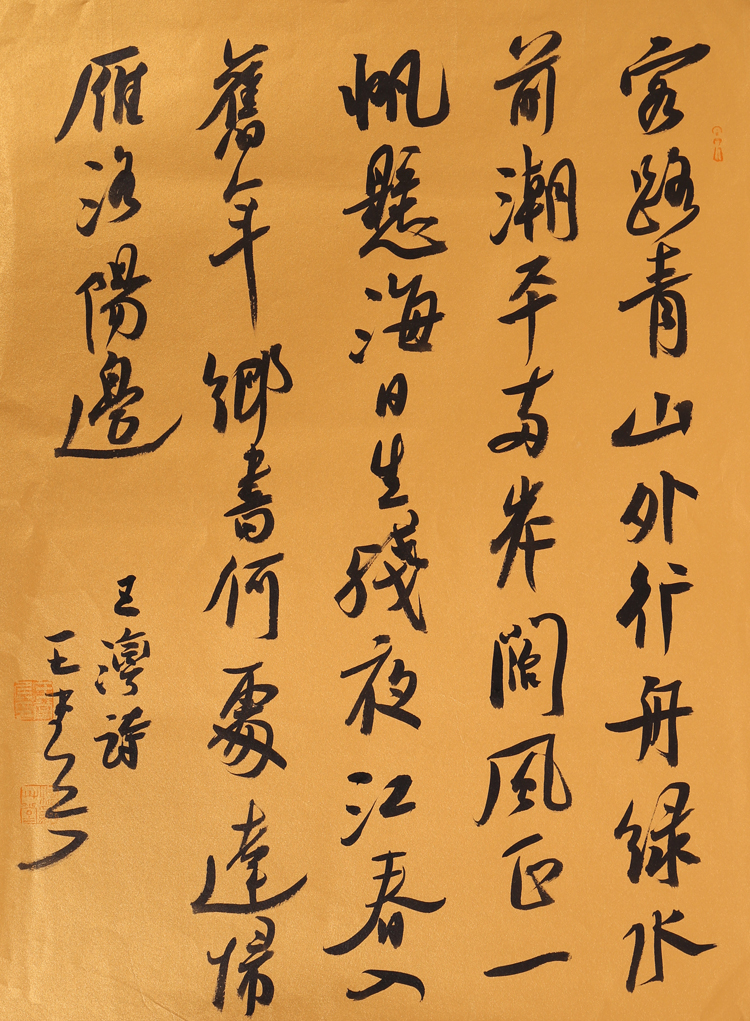 客路青山外行舟綠水
前潮平兩岸闊風正一
帆懸海日生殘夜江春入
舊年鄉書何處達歸
雁洛陽邊
王灣詩
王